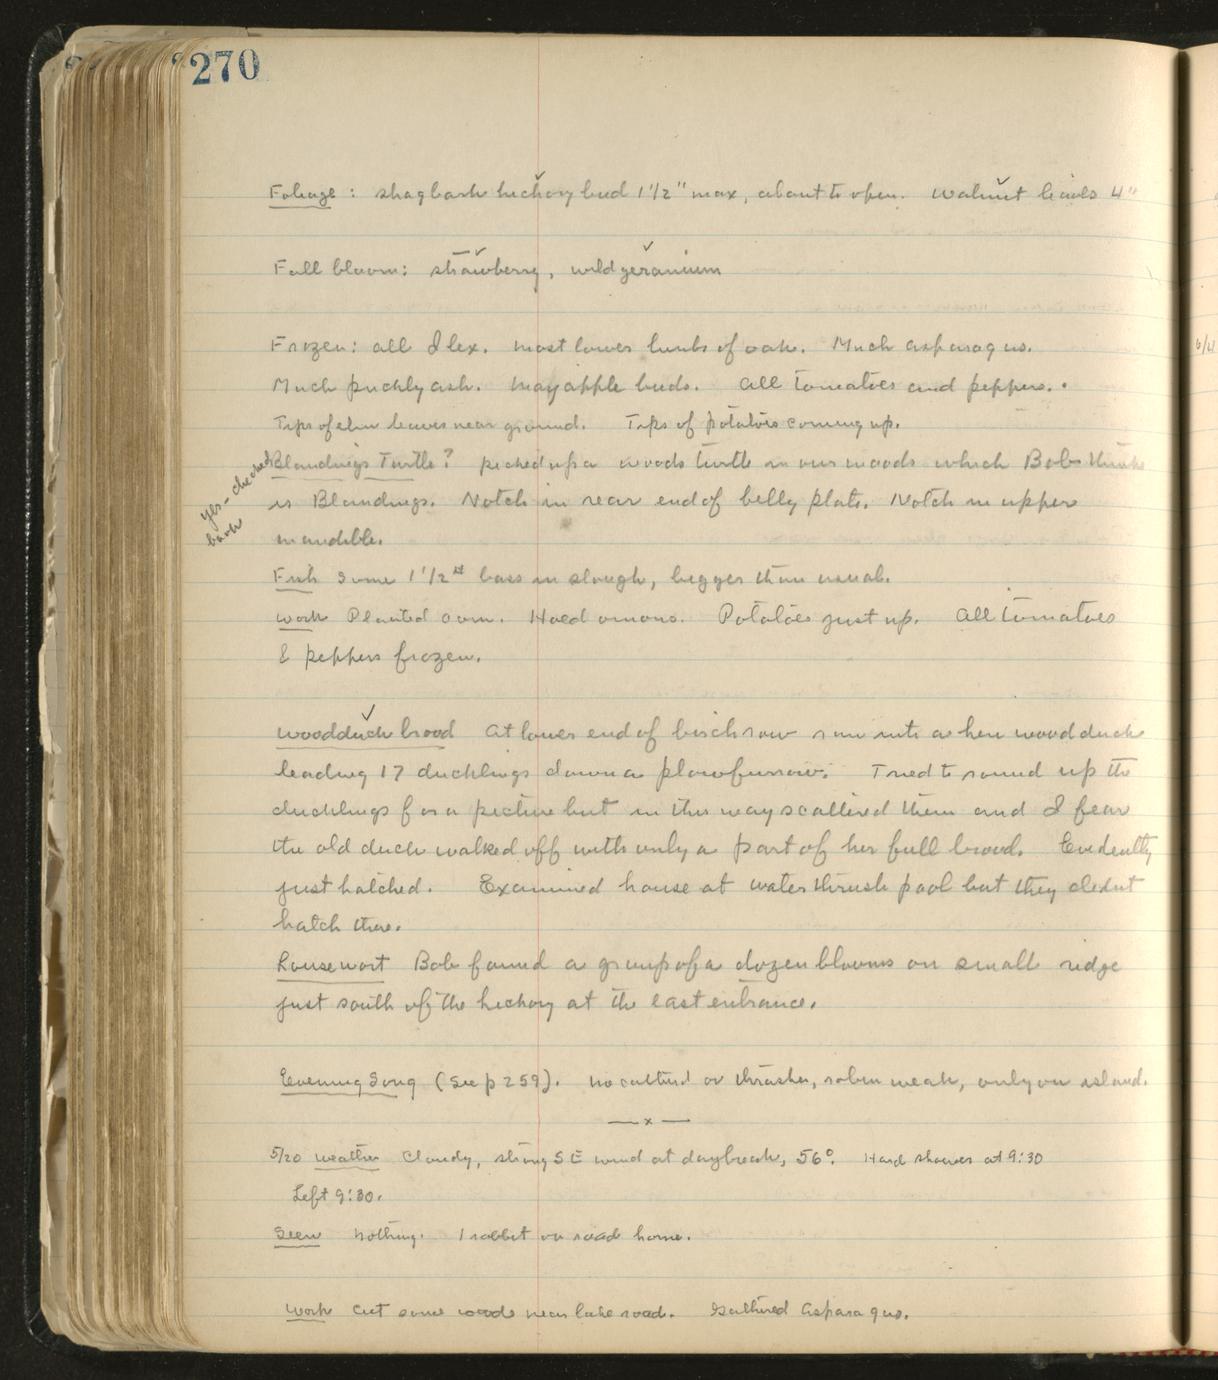 270
Foliage: shagbark hickory bud 1 1/2" max, about to open. Walnut leaves 4"
Full bloom: strawberry, wild geranium
Frozen: all Ilex. most lower limbs of oak. Much asparagus.
Much prickly ash. mayapple buds. All tomatoes and peppers.
Tips of elm leaves near ground. Tips of potatoes coming up.
Blandings Turtle? picked up a woods turtle in our woods which Bob thinks
yes - checked
book
is Blandings. Notch in rear end of belly plate. Notch in upper
mandible.
Fish Some 1 1/2# bass in slough, bigger than usual.
Work Planted corn. Hoed onions. Potatoes just up. All tomatoes
& peppers frozen.
Woodduck brood At lower end of birch row ran into a hen wood duck
leading 17 ducklings down a plowfurrow. Tried to round up the
ducklings for a picture but in this way scattered them and I fear
the old duck walked off with only a part of her full brood. Evidently
just hatched. Examined house at water thrush pool but they didnt
hatch there.
Lousewort Bob found a group of a dozen blooms on small ridge
just south of the hickory at the east entrance.
Evening Song (See p 259). No catbird or thrasher, robin weak, only on island.
—x—
5/20 Weather Cloudy, strong SE wind at daybreak, 56°. Hard shower at 9:30
Left 9:30.
Seen Nothing. 1 rabbit on road home.
Work Cut some wood near lake road. Gathered Asparagus.